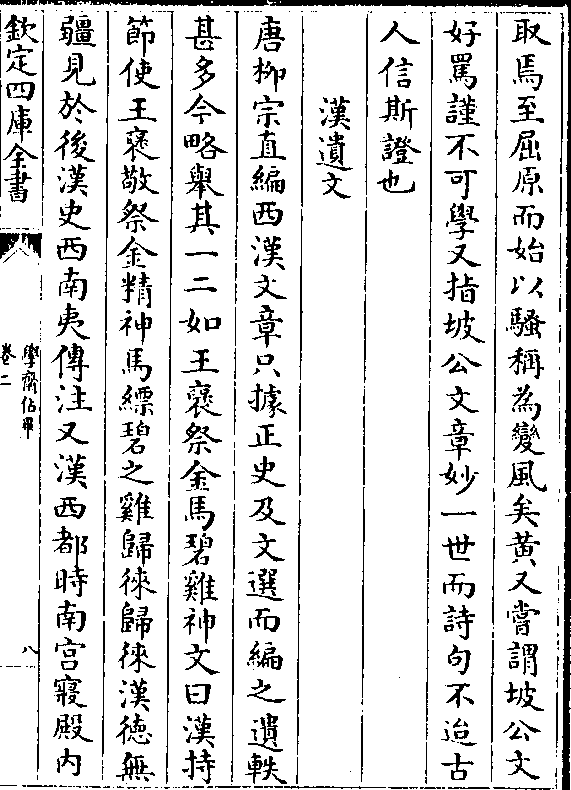 取焉至屈原而始以騷稱為變風矣黃又嘗謂坡公文
好罵謹不可學又指坡公文章妙一世而詩句不逮古
人信斯證也
漢遺文
唐柳宗直編西漢文章只據正史及文選而編之遺軼
甚多今略舉其一二如王褒祭金馬碧雞神文曰漢持
節使王褒敬祭金精神馬縹碧之雞歸徠歸徠漢德無
疆見於後漢史西南夷傳注又漢西都時南宫寢殿内
欽定四庫全書
學齋佔畢
卷二
八